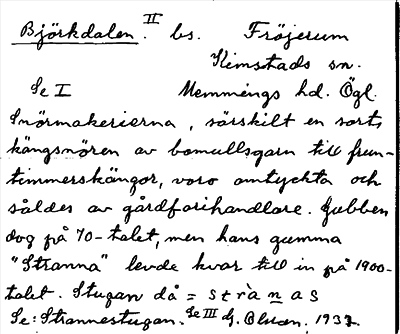 Björkdalen. II bs. Fröjerum
Kimstads sn.
Se I Memmings hd. Ögl.
Snörmakerierna, särskilt en sorts
kängsnören av bomullsgarn till frun-
timmerskängor, voro omtyckta och
såldes av gårdfarihandlare. Gubben
dog på 70-talet, men hans gumma
"Stranna" levde kvar till in på 1900-
talet. Stugan då = strànas
Se: Strannestugan. Se III G. Olsson. 1937.